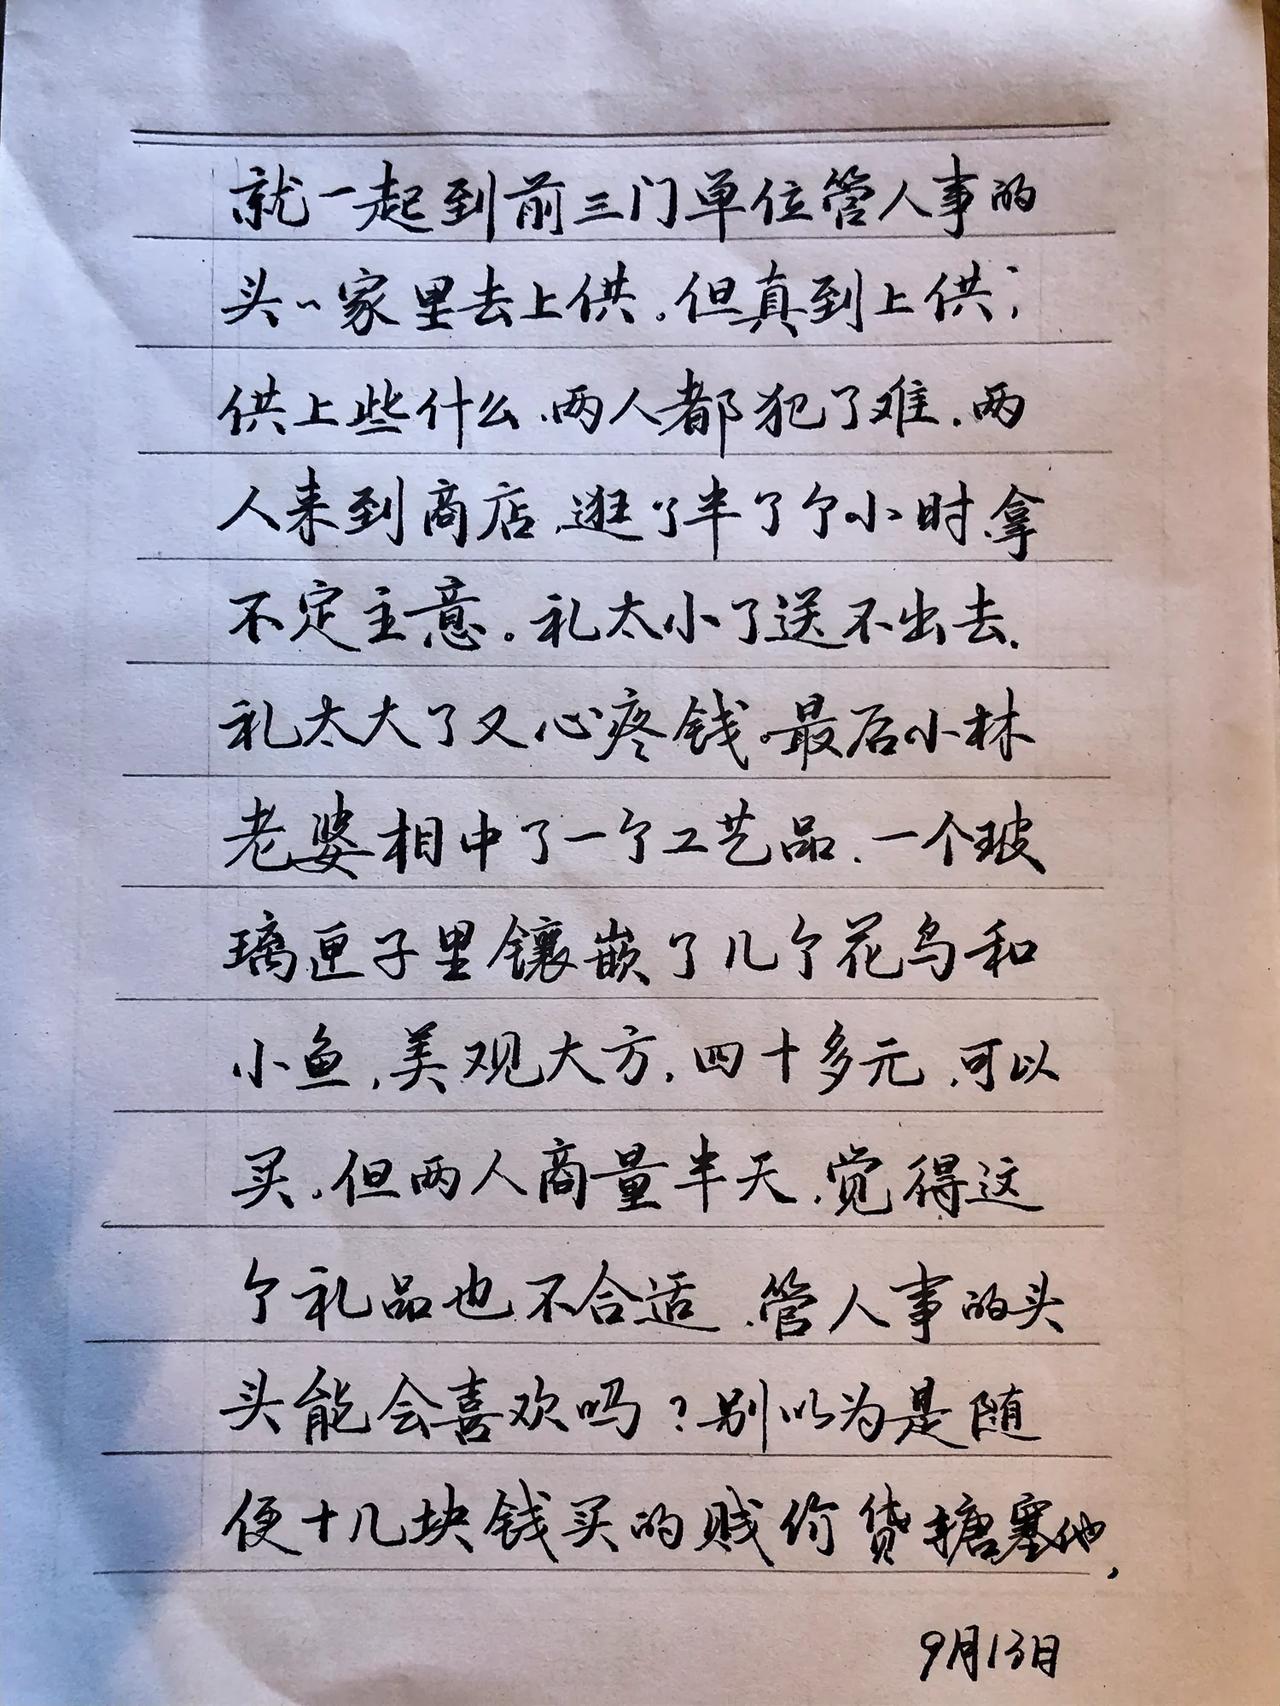 就一起到前三门单位管人事的
头〻家里去上供。但真到上供,
供上些什么,两人都犯了难。两
人来到商店,逛了半了个小时,拿
不定主意。礼太小了送不出去,
礼太大了又心疼钱。最后小林
老婆相中了一个工艺品,一个玻
璃匣子里镶嵌了几个花鸟和
小鱼,美观大方,四十多元,可以
买。但两人商量半天,觉得这
个礼品也不合适,管人事的头
头能会喜欢吗?别以为是随
便十几块钱买的贱价货搪塞他,
9月13日